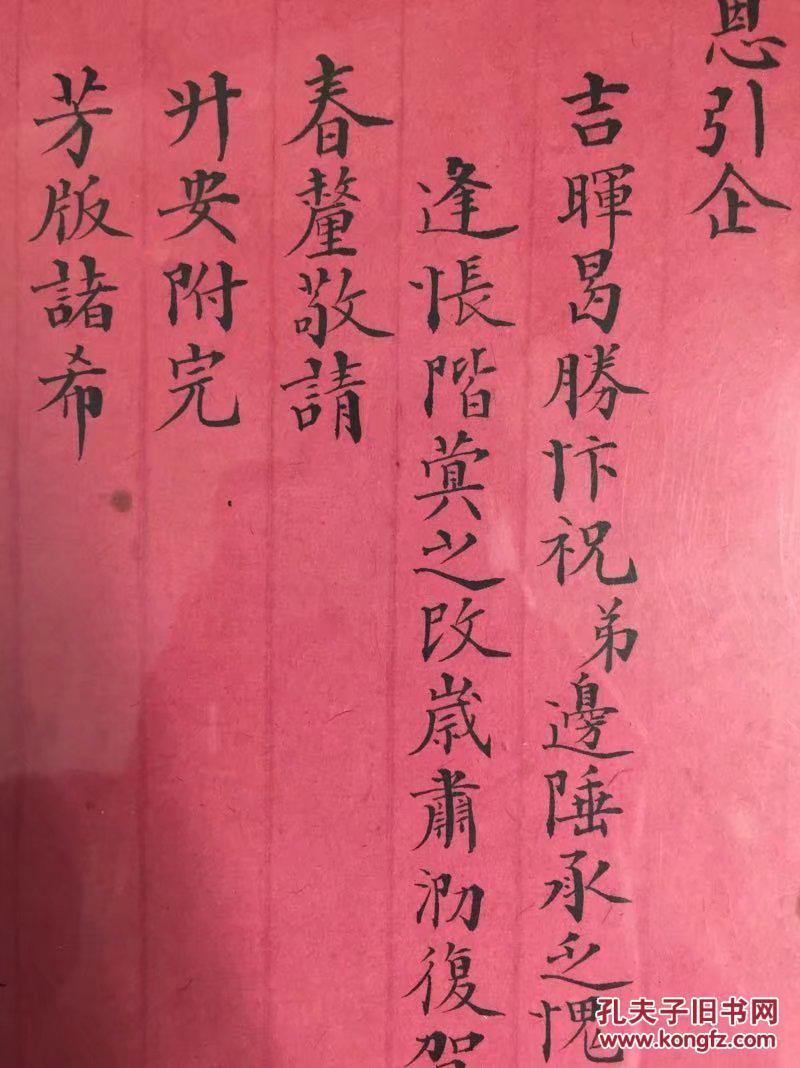 恩引企
吉暉曷勝忭祝弟邊陲承乏愧
逢悵階蓂之改歲肅泐復賀
春釐敬請
升安附完
芳版諸希
孔夫子旧书网
www.kongfz.com